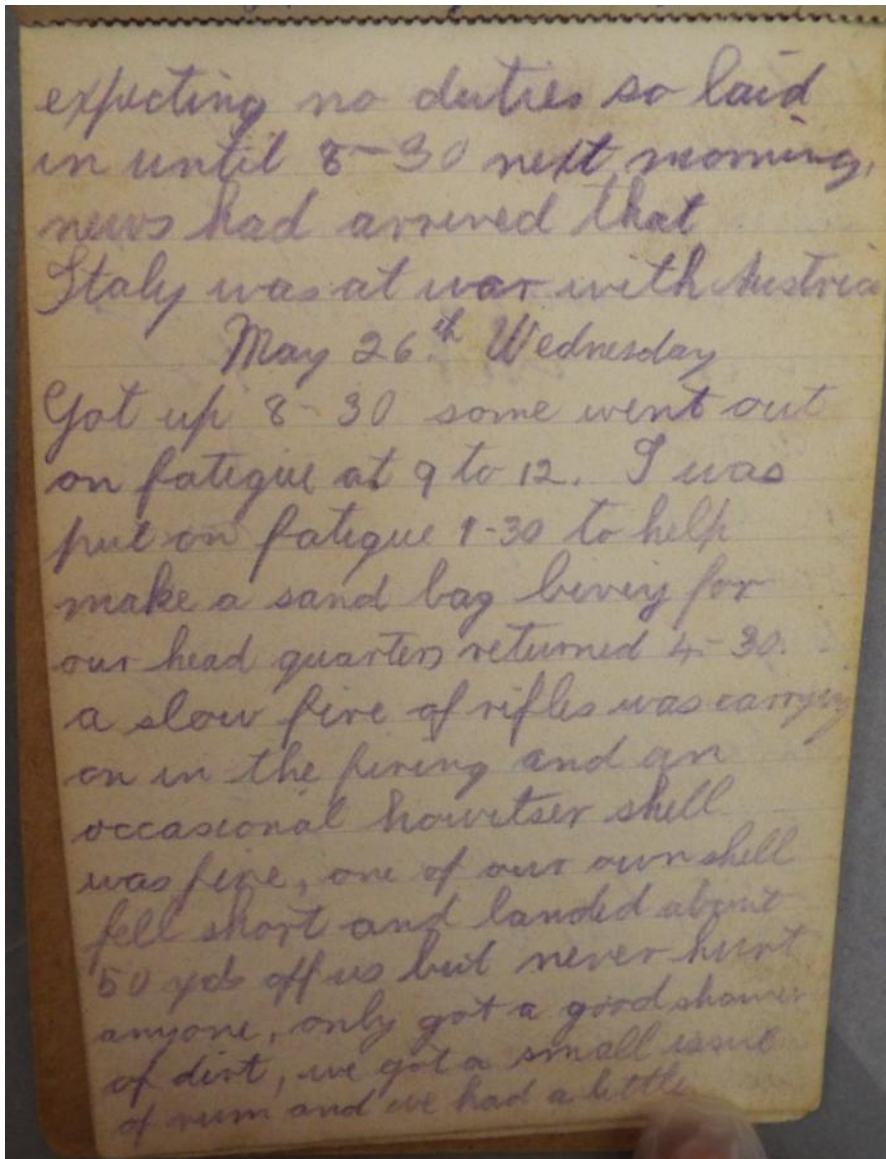 expecting no duties so laid
in until 8-30 next morning,
news had arrived that
Italy was at war with Austria
May 26th Wednesday
Got up 8-30 some went out
on fatigue at 9 to 12. I was
put on fatigue 1-30 to help
make a sand bag bivviy for
our head quarters returned 4-30.
a slow fire of rifles was carrying
on in the firing and an
occasional howitser shell
was fire, one of our own shell
fell short and landed about
50 yds off us but never hurt
anyone, only got a good shower
of dirt, we got a small issue
of rum and we had a little